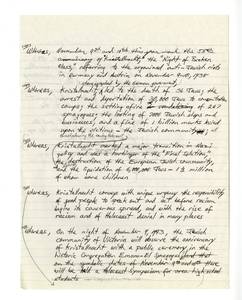 Whereas, November 9th and 10th this year mark the 55th
anniversary of "Kristallnacht," the "Night of Broken
Glass," referring to the organized anti-Jewish riots
in Germany and Austria on November 9-10, 1938
by the German government
Whereas, Kristallnacht led to the death of 36 Jews, the
arrest and deportation of 30,000 Jews to concentration
camps, the setting afire or vandalizing of 267
synagogues, the looting of 7000 Jewish shops and
businesses, and a fine of 1 billion marks levied
upon the victims - the Jewish community
Whereas, Kristallnacht marked a major transition in Nazi
policy and was a harbinger of the "Final Solution,"
the destruction of the European Jewish community,
and the liquidation of 6,000,000 Jews - 1.5 million
of whom were children
Whereas, Kristallnacht conveys with unique urgency the responsibility
of good people to speak out and act before racism
begins its cancerous spread, and with the rise of
racism and of Holocaust denial in many places
Whereas, On the night of November 9, 1993, the Jewish
community of Victoria will observe the anniversary
of Kristallnacht with a public ceremony in the
historic Congregation Emanu-El Synagogue and that
on the
will be held a Holocaust Symposium for area high school
students